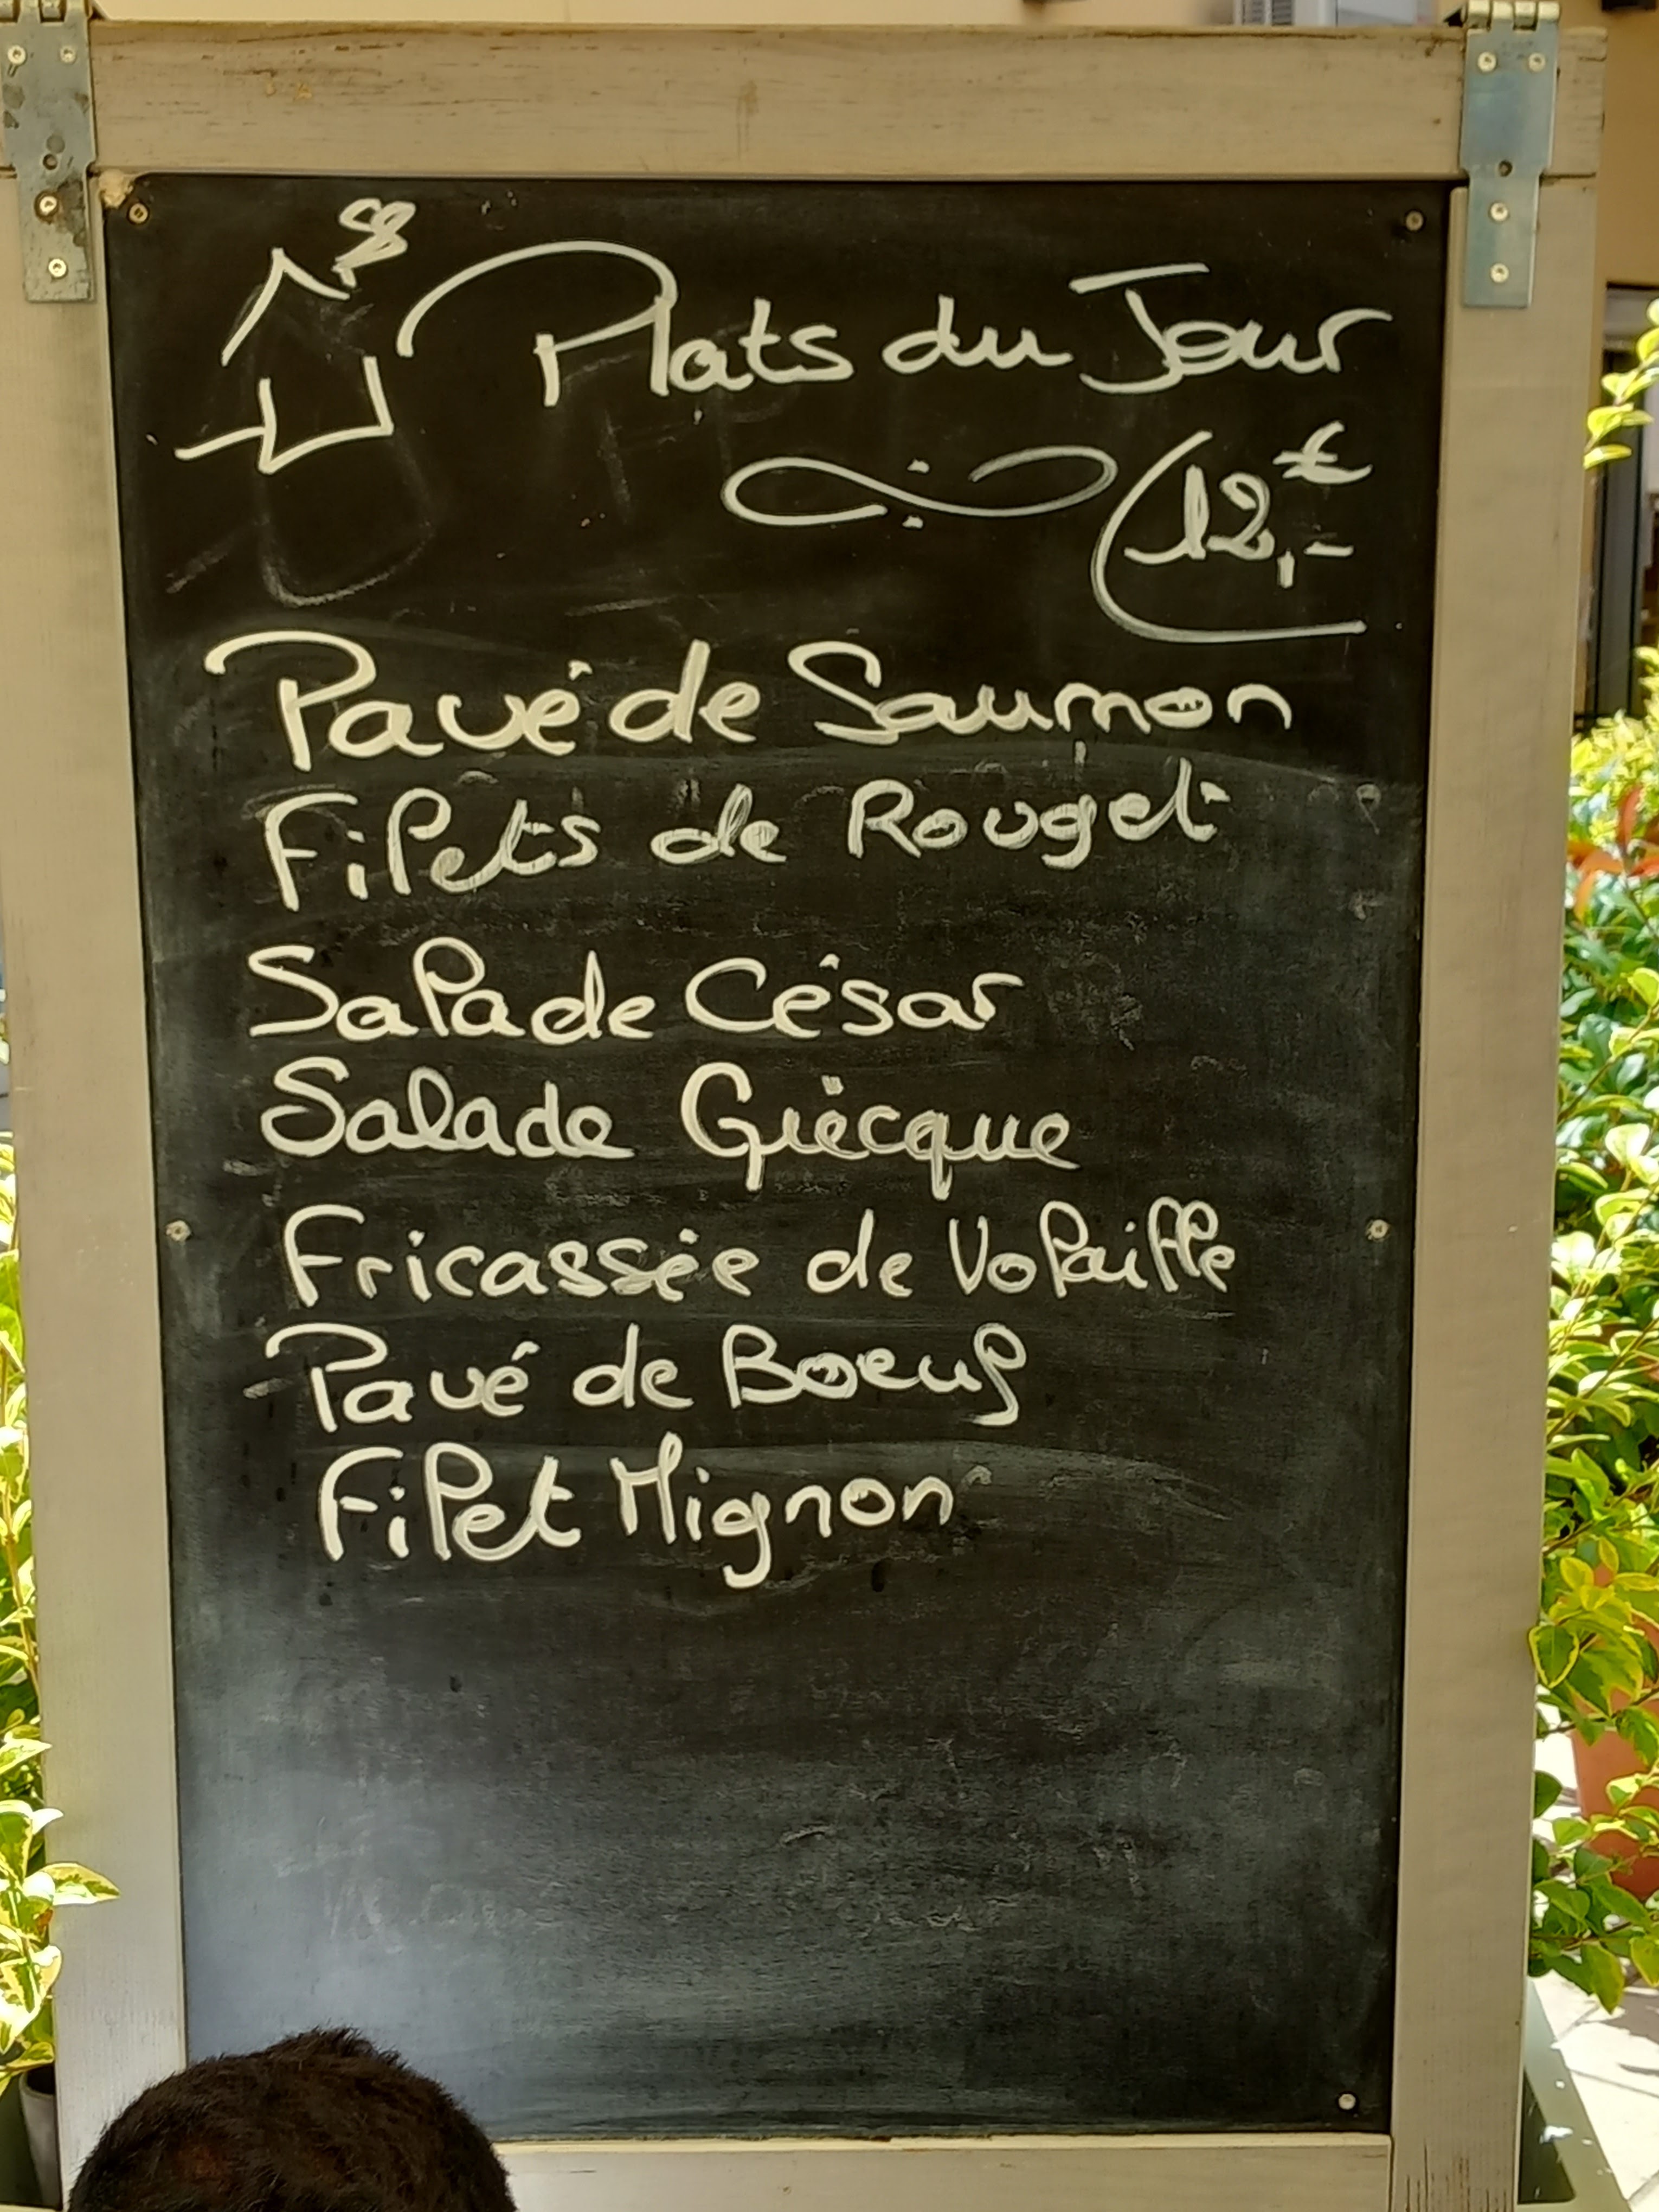 Plats du Jour
12,-€
Pavé de Saumon
Filets de Rouget
Salade César
Salade Grècque
Fricassée de Volaille
Pavé de Boeuf
Filet Mignon